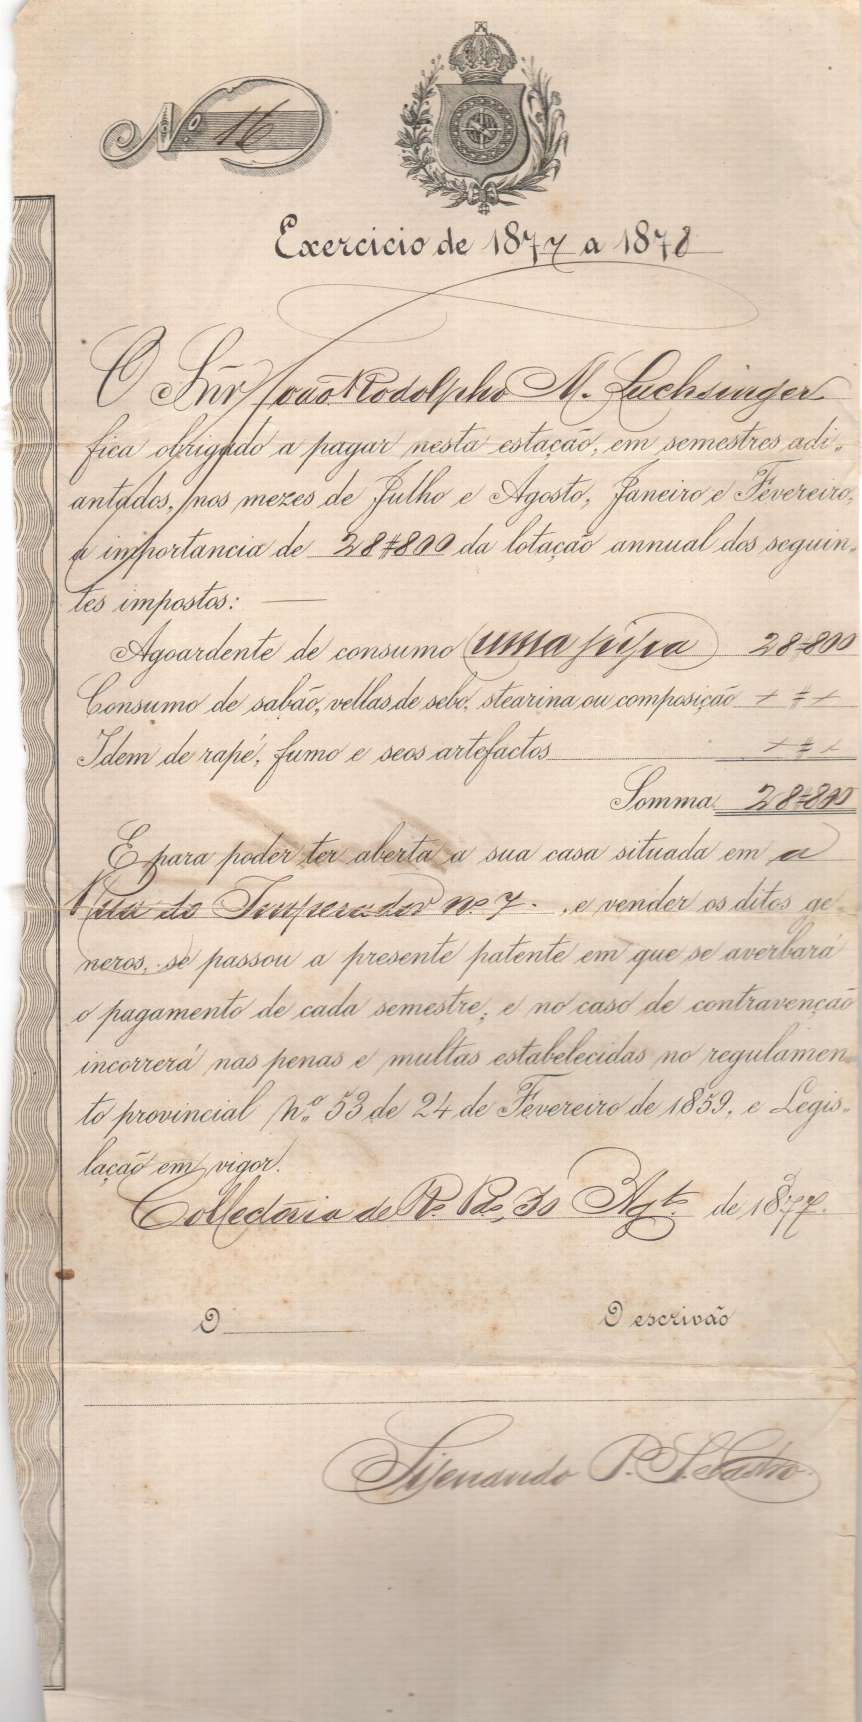 Nº 16
Exercicio de 1877 a 1878
O Snr João Rodolpho M. Luchsinger
fica obrigado a pagar nesta estação, em semestres adi-
antados, nos mezes de Julho e Agosto, Janeiro e Fevereiro,
a importancia de 28$800 da lotação annual dos seguin-
tes impostos: —
Agoardente de consumo (uma pipa) 28$800
Consumo de sabão, vellas de sebo, stearina ou composição + $ +
Idem de rapé, fumo e seos artefactos + $ +
Somma 28$800
E para poder ter aberta a sua casa situada em a
Rua do Imperador nº 7. , e vender os ditos ge-
neros, se passou a presente patente em que se averbará
o pagamento de cada semestre; e no caso de contravenção
incorrerá nas penas e multas estabelecidas no regulamen-
to provincial nº 53 de 24 de Fevereiro de 1859, e Legis-
lação em vigor.
Collectoria de 30 Agto de 1877.
O O escrivão
Sisenando P. S. Castro